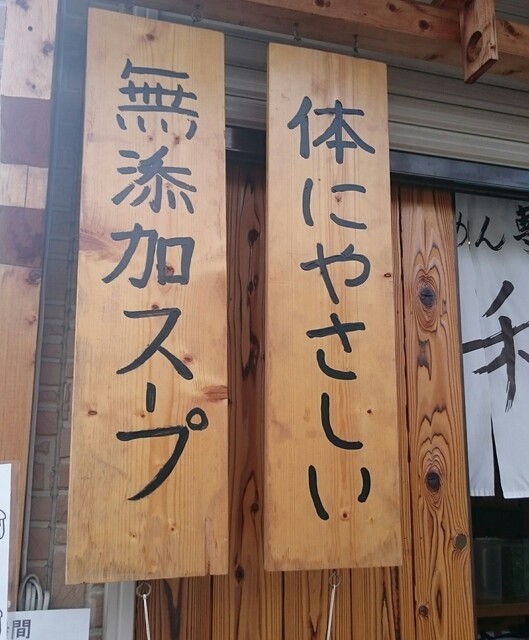 体にやさしい
無添加スープ
めん
間